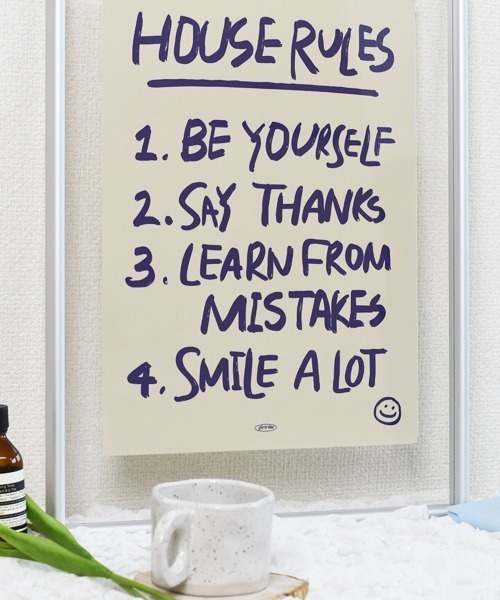 HOUSE RULES
1. BE YOURSELF
2. SAY THANKS
3. LEARN FROM
MISTAKES
4. SMILE A LOT